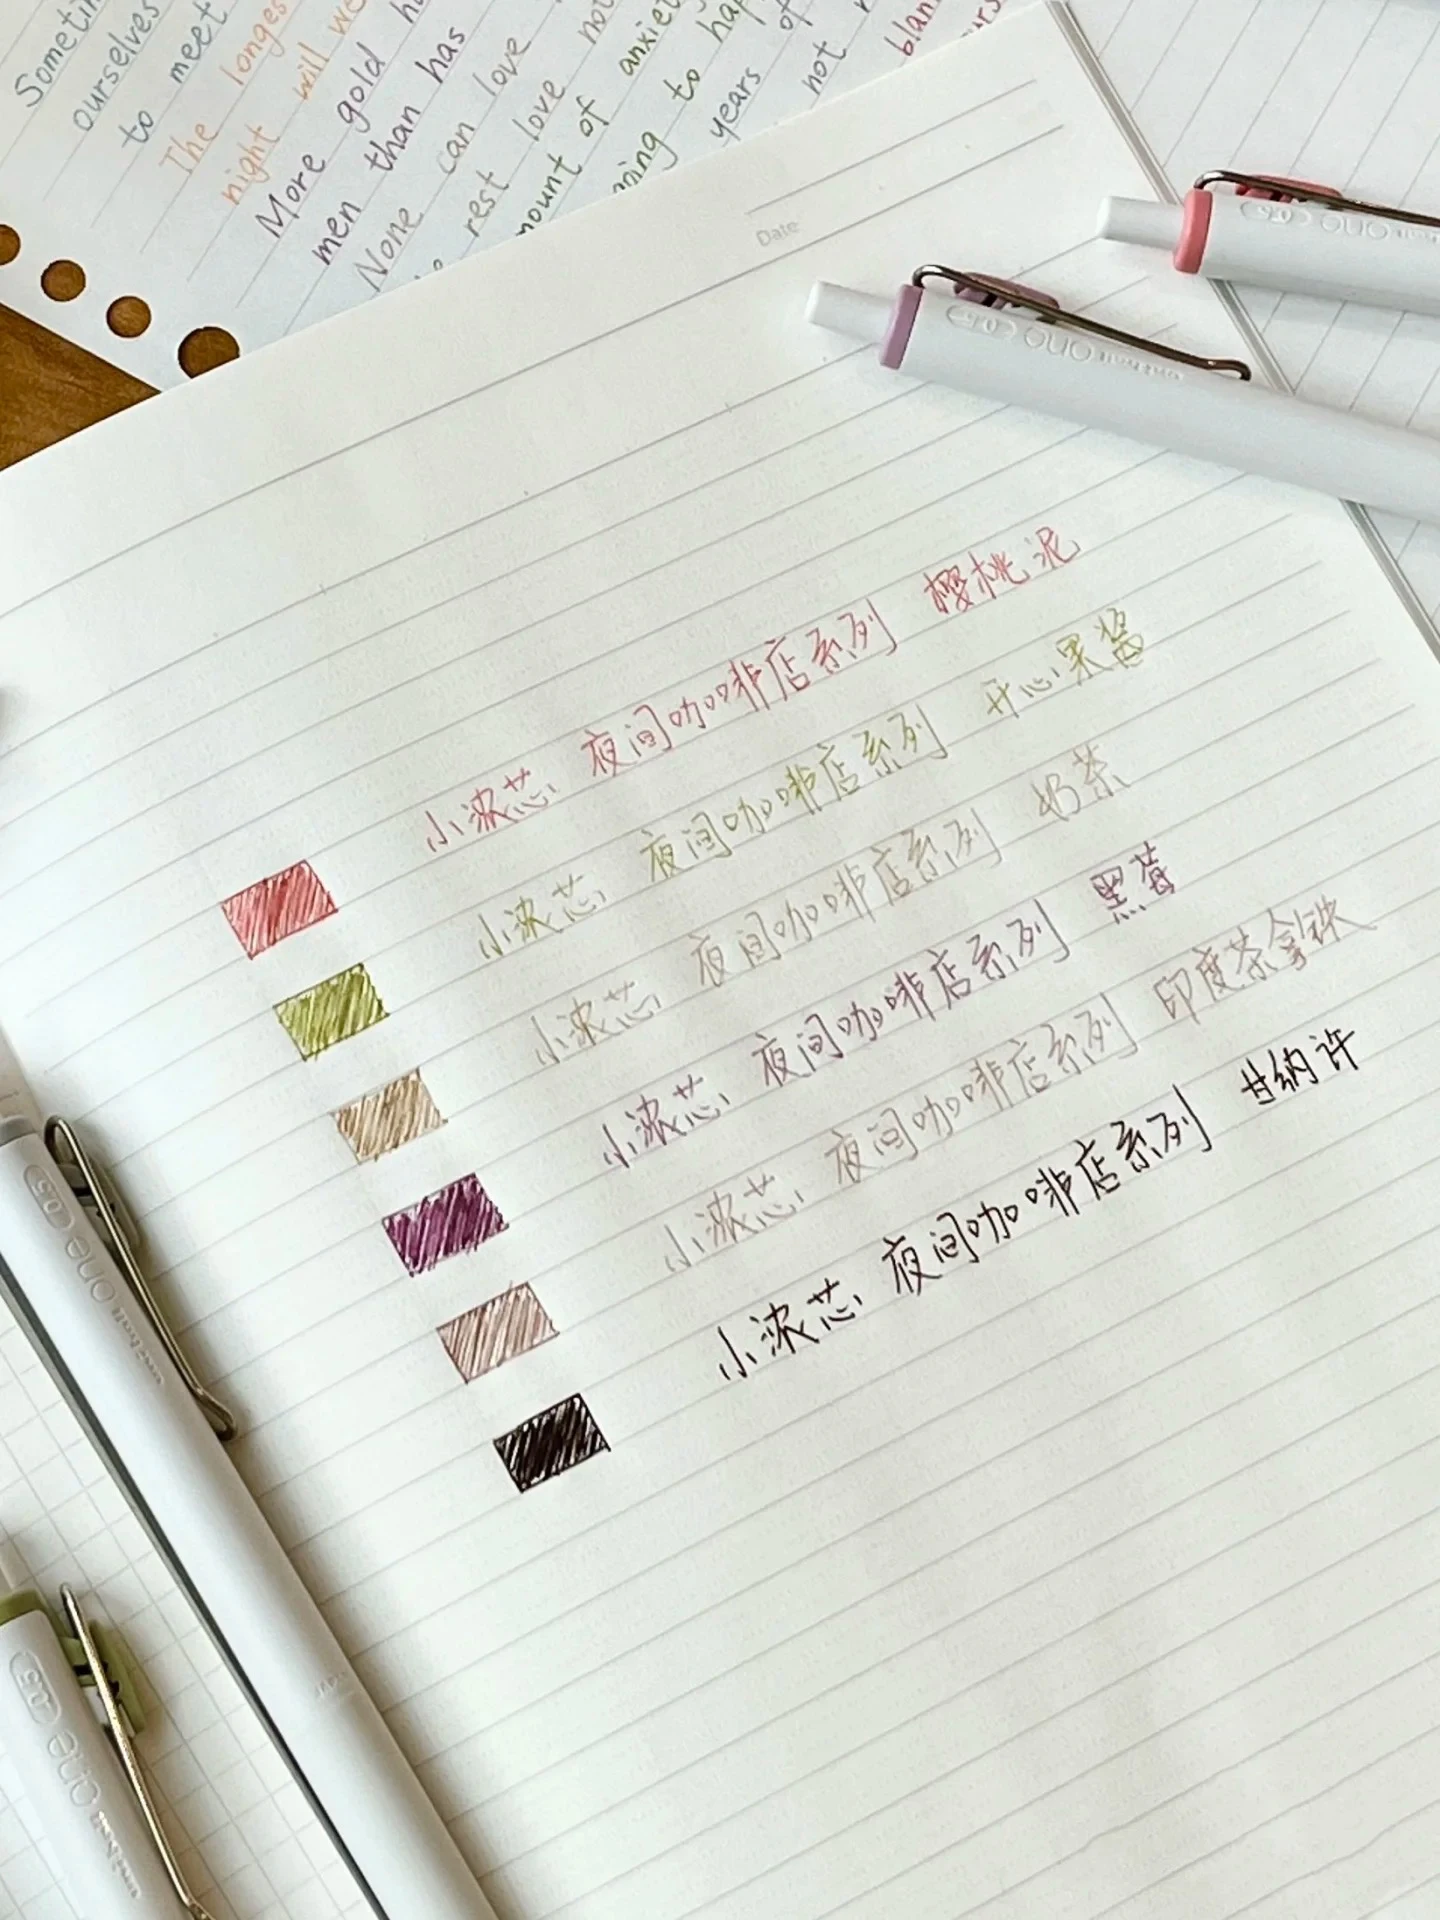 Sometin
ourselves
to meet
The longes
night will we
More gold h
men than has
None can love
rest love not
mount of anxiet
to hap
years of
not
blan
Date
0.5 uni-ball one
0.5 uni-ball one
小浓芯 夜间咖啡店系列 樱桃泥
小浓芯 夜间咖啡店系列 开心果酱
小浓芯 夜间咖啡店系列 奶茶
小浓芯 夜间咖啡店系列 黑莓
小浓芯 夜间咖啡店系列 印度茶拿铁
小浓芯 夜间咖啡店系列 甘纳许
0.5 uni-ball one
0.5 uni-ball one